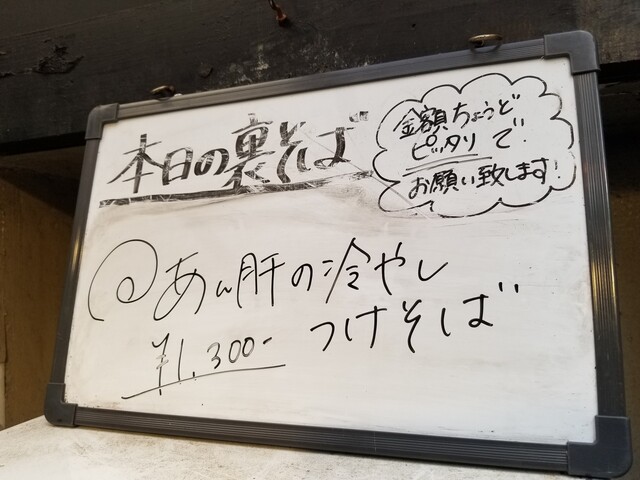 本日の裏そば
金額ちょうど
ピッタリで
お願い致します!
@あん肝の冷やし
つけそば
¥1,300-